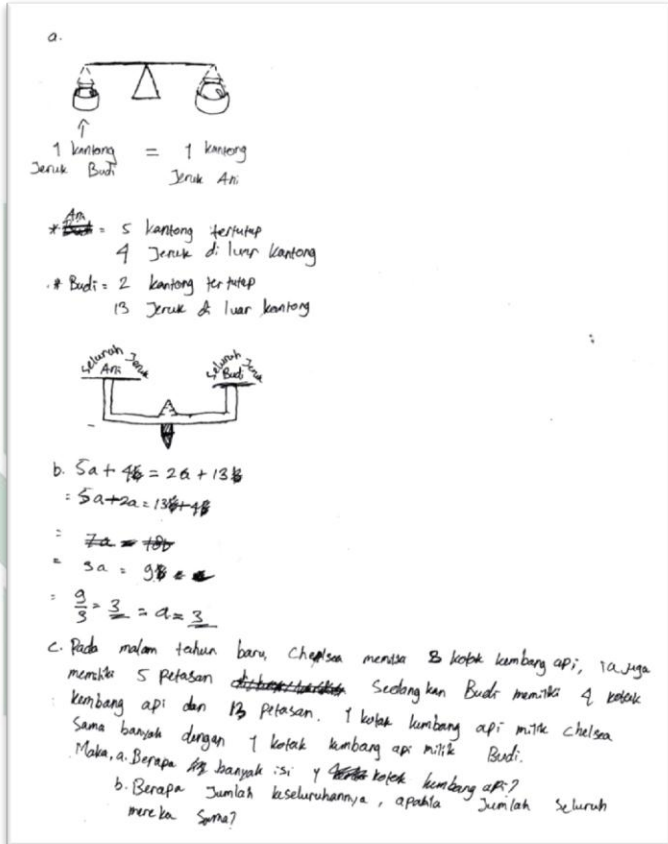 a.
1 kantong = 1 kantong
Jeruk Budi Jeruk Ani
* Ani = 5 kantong tertutup
4 Jeruk di luar kantong
* Budi = 2 kantong tertutup
13 Jeruk di luar kantong
Seluruh Jeruk Ani
Seluruh Jeruk Budi
b. 5a + 4 = 2a + 13
= 5a+2a = 13+4
= 7a = 18b
= 3a = 9
= 9/3 = 3 = a = 3
c. Pada malam tahun baru, Chelsea 8 kotak kembang api, ia juga
memiliki 5 petasan Sedangkan Budi memiliki 4 kotak
kembang api dan 13 petasan. 1 kotak kembang api milik Chelsea
Sama banyak dengan 1 kotak kembang api milik Budi.
Maka, a. Berapa banyak isi kotak kembang api?
b. Berapa Jumlah keseluruhannya, apabila Jumlah Seluruh
mereka Sama?